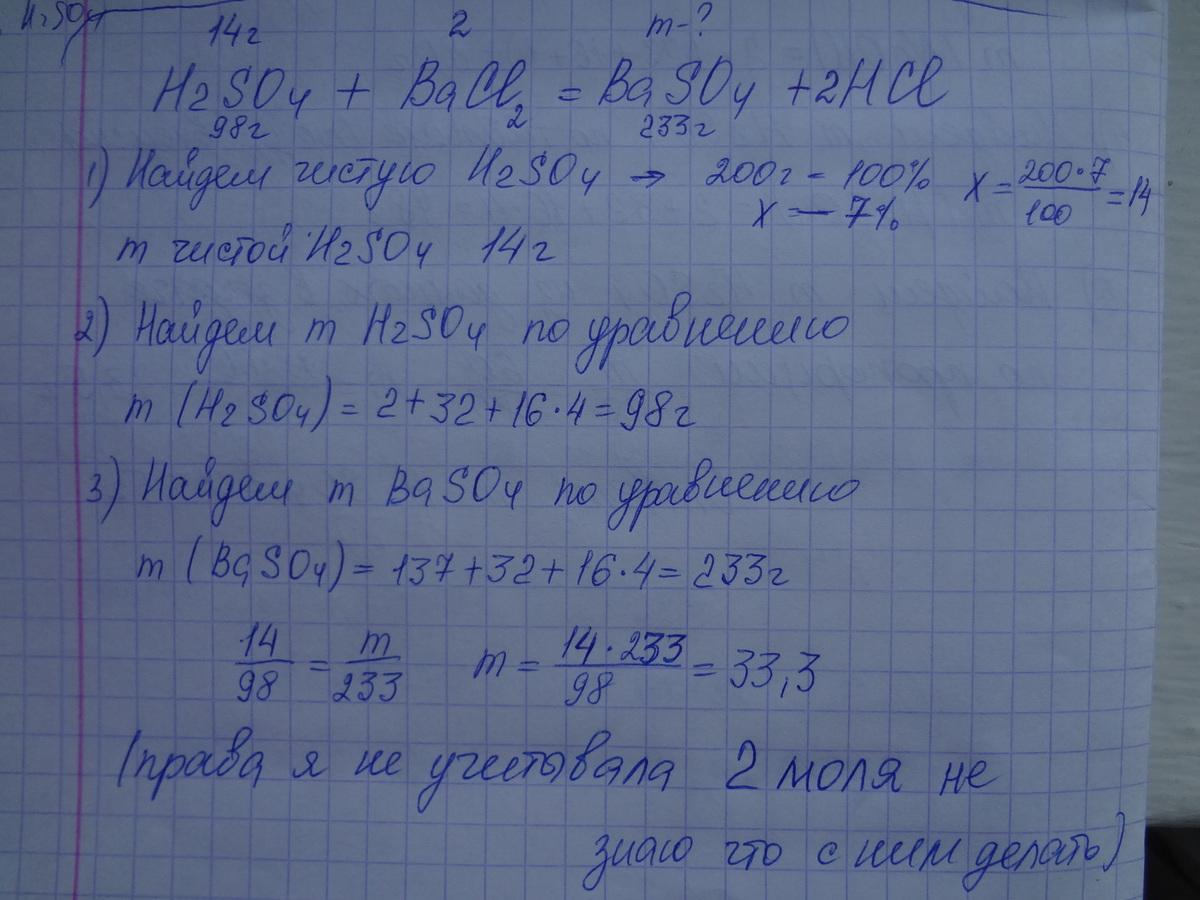 H2SO4
14г 2 m-?
H2SO4 + BaCl2 = BaSO4 + 2HCl
98г 233г
1) Найдем чистую H2SO4 → 200г - 100% x = 200·7/100 = 14
x — 7%
m чистой H2SO4 14г
2) Найдем m H2SO4 по уравнению
m (H2SO4) = 2+32+16·4=98г
3) Найдем m BaSO4 по уравнению
m (BaSO4) = 137+32+16·4= 233г
14/98 = m/233 m = 14·233/98 = 33,3
(права я не учестывала 2 моля не
знаю что с ним делать)